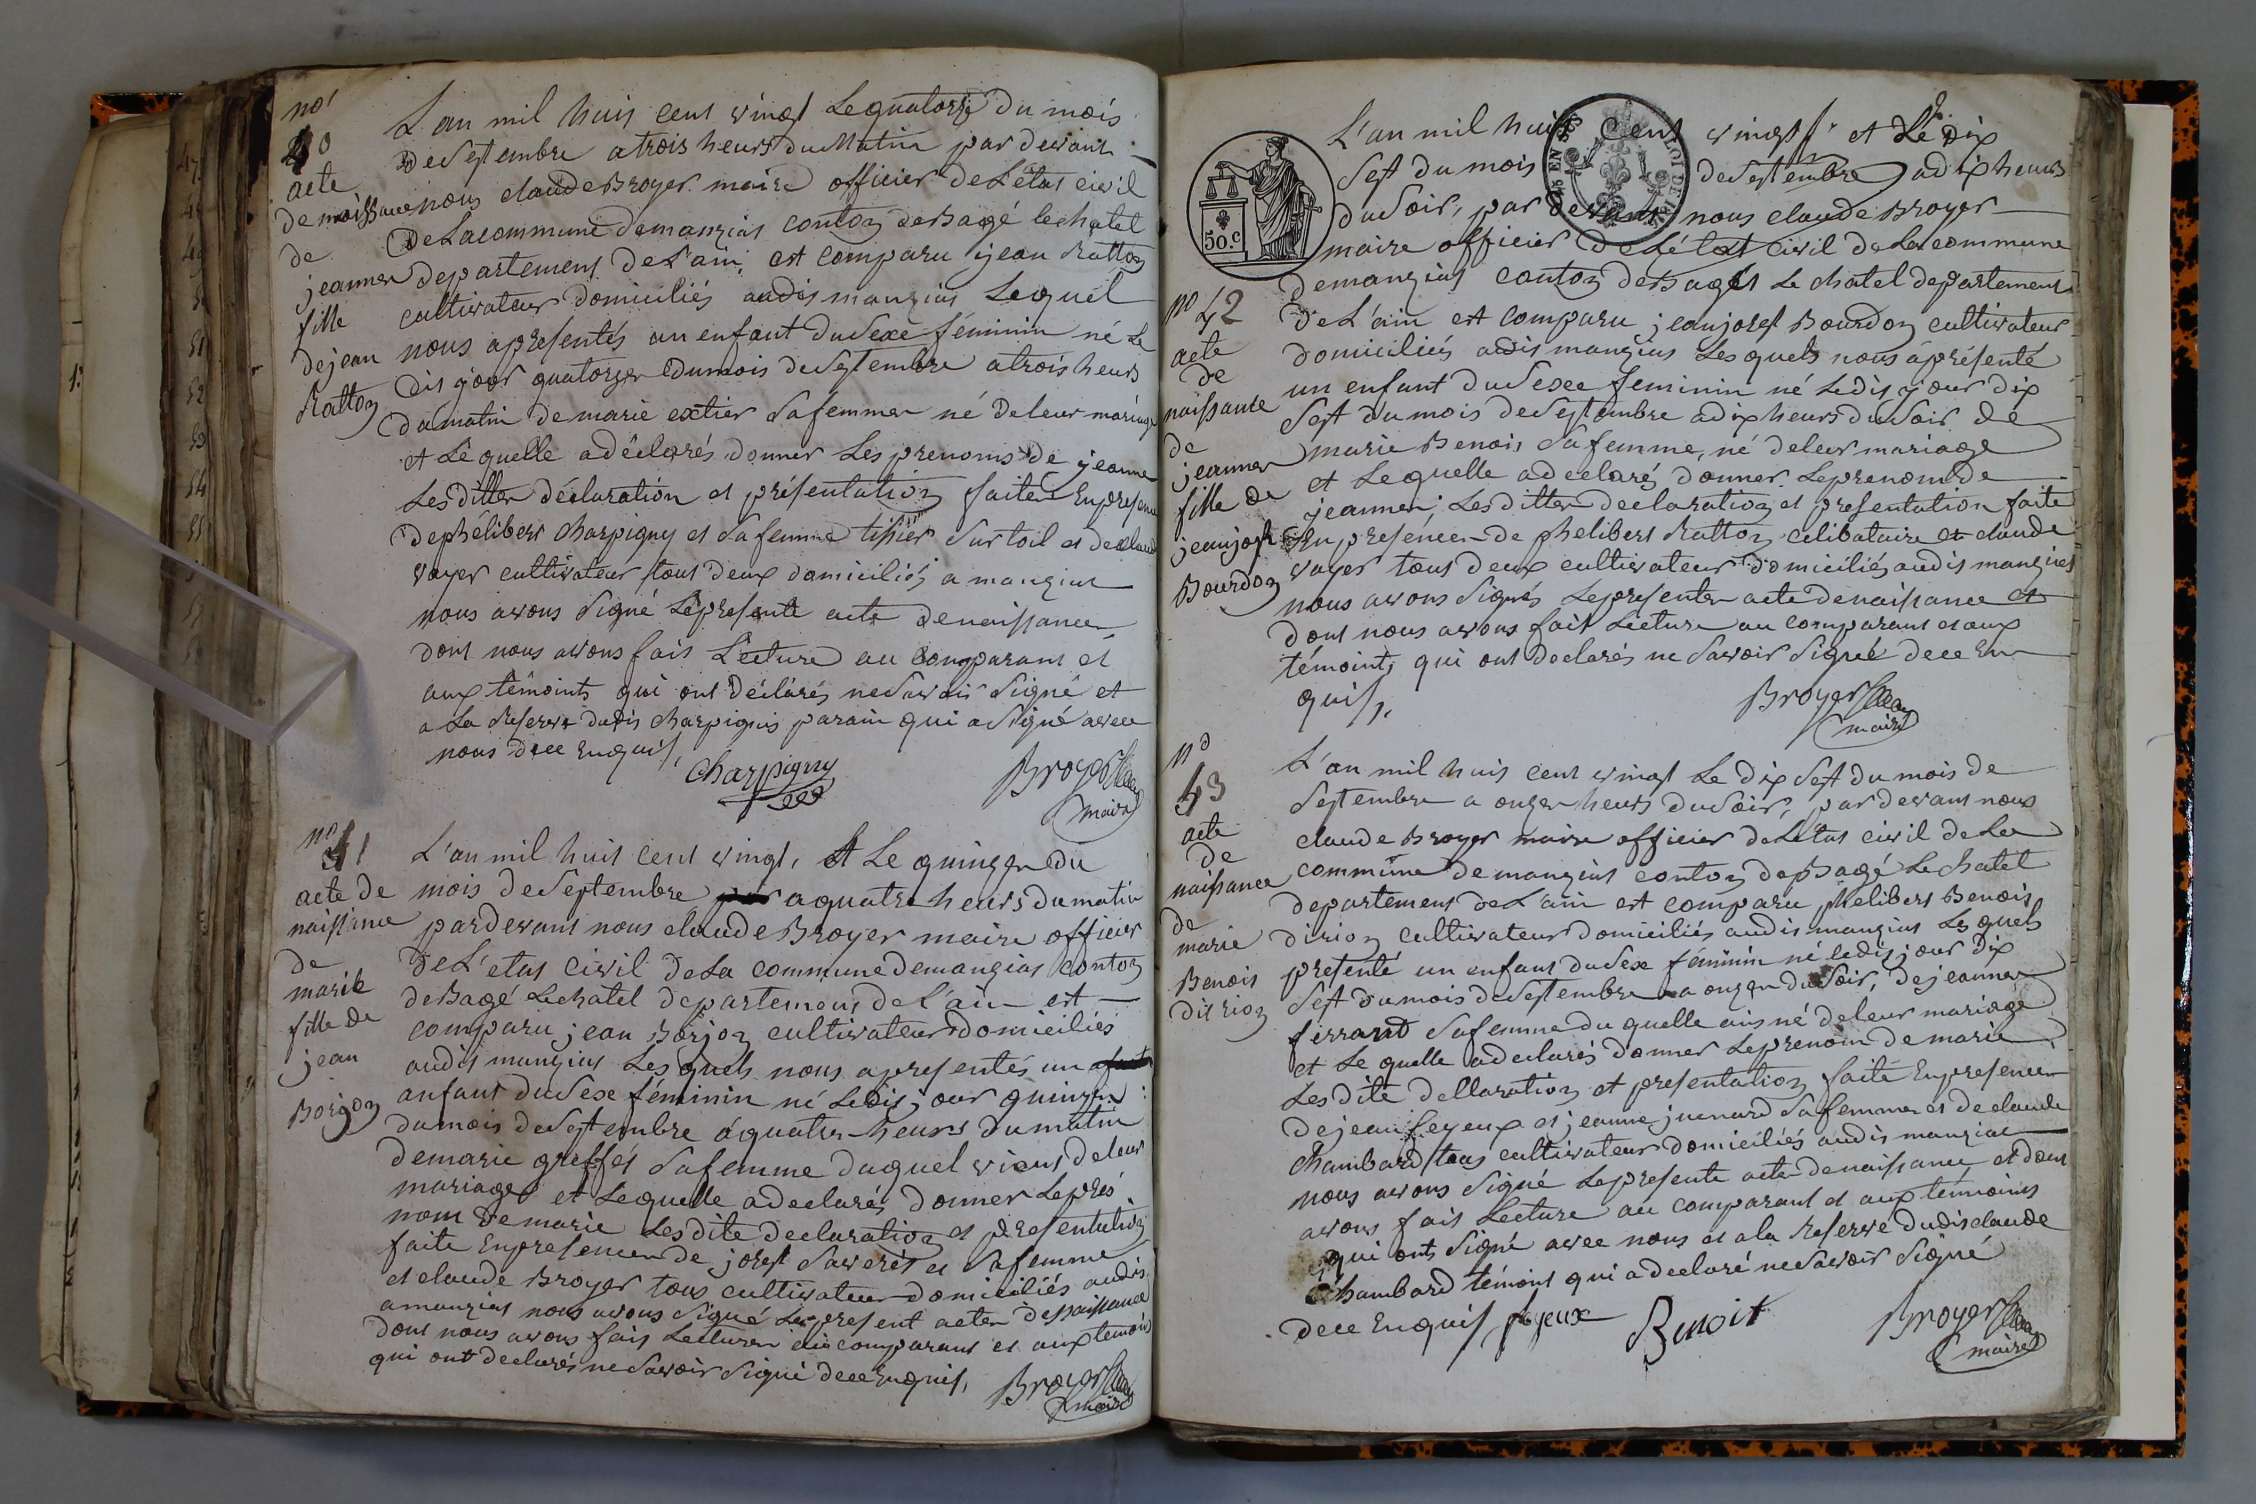 no
40
acte
de naissance
de
jeanner
fille
dejean
Ratton
L'an mil huis cent vingt Le quatorze du mois
deSeptembre a trois heurs du Matin par devant
nous claude Broyer maire officier de L'état civil
de Lacommune demanzias conton deBagé lechatel
departement de L'ain, est comparu jean Ratton
cultivateur domiciliés audis manzias Lequel
nous apresentés un enfant duSexe féminin né Le
dis jour quatorze dumois deSeptembre atrois heurs
du matin de marie extier Safemmer né deleur mariage
et Lequelle adéclarés donner Les prenoms de jeanne
Lesditter déclaration et présentation faiter Enpresence
dephélibers charpigny et Safemme tissier Surtoil et declaude
voyer cultivateur tous deux domiciliés a manzias
nous avons Signé Lepresente acte denaissance
dont nous avons fais Lecture au comparans et
aux témoints qui ont déclarés neSavoir Signé et
a La Reserve dudis charpignis parain qui a Signé avec
nous dece Enquis,
Charpigny
Broyer
maire
no 41
acte de
naissance
de
marie
fille de
jean
Borjon
L'an mil huit cent vingt, et Le quinzer du
mois deSeptembre aquatre heurs dumatin
pardevant nous claudeBroyer maire officier
deL'etas civil deLa commune demanzias conton
deBagé Lechâtel departemens de L'ain est
comparu jean Borjon cultivateur domiciliés
audis manzias Les quels nous apresentés un
anfant duSexe féminin né Ledis jour quinzer
dumois deSeptembre áquatre heurs du matin
demarie greffet Safemme duquel viens deleur
mariage et Lequelle adeclarés donner Lepré
nom de marie Lesdite declaration et presentation
faite Enpresencer de josest Saverès et Safemme
et claude Broyer tous cultivateur domiciliés audis
amanzias nous avons Signé Lepresent acter denaissance
dont nous avons fais Lecturer au comparans et aux temoin
qui ont declarés neSavoir Signé dece Enquis,
Broyer
maire
5o.c
no 42
acte
de
naissance
de
jeanner
fille de
jeanjosest
Bourdon
L'an mil huit cent vingt et Le dix
Sest du mois deSeptembre adix heurs
duSoir, par devant nous claude Broyer
maire officier de L'état civil de La commune
demanzias conton deBagés Le chatel departement
de L'ain est comparu jeanjosest Bourdon cultivateur
domiciliés audis manzias Lesquels nous aprésenté
un enfant duSexe feminin né Ledis jour dix
Sest du mois deSeptembre adix heurs duSoir de
marie Benois Safemme, né deleur mariage
et Lequelle adeclarés donner Leprenomde
jeanner; Lesditter declaration et presentation faite
Enpresencer de phelibers Ratton celibataire et claude
voyer tous deux cultivateur domiciliés audis manzias
nous avons Signés Lepresenter acte denaissance et
dont nous avons fait Lecture au comparant et aux
témoints qui ont declarés ne Savoir Signé dece En
quis,
Broyer
maire
no
43
acte
de
naissance
de
marie
Benois
dit rion
L'an mil huis cent vingt Le dix Sest du mois de
Septembre a onzer heurs duSoir, par devant nous
claude Broyer maire officier de L'etas civil deLa
commune de manzias conton deBagé Lechatel
departement deL'ain est comparu phelibers Benois
dirion cultivateur domiciliés audis manzias Lesquels
presenté un enfant duSexe féminin né ledis jour dix
Sest dumois deSeptembre a onzer duSoir, dejeanner
ferrand Safemme du quelle ais né deleur mariage
et Lequelle adeclarés donner Leprenom de marie
Lesdite dellaration et presentation faite Enpresencer
dejean feyeux et jeanne juenard Safemme et declaude
chambard tous cultivateur domiciliés audis manzias
nous avons Signé Lepresente acte denaissance et dont
avons fais Lecture au comparant et aux témoins
qui ont Signé avec nous et ala Reserve dudis claude
chambard témoint qui adeclaré neSavoir Signé
dece Enquis
feyeux
Benoit
Broyer
maire